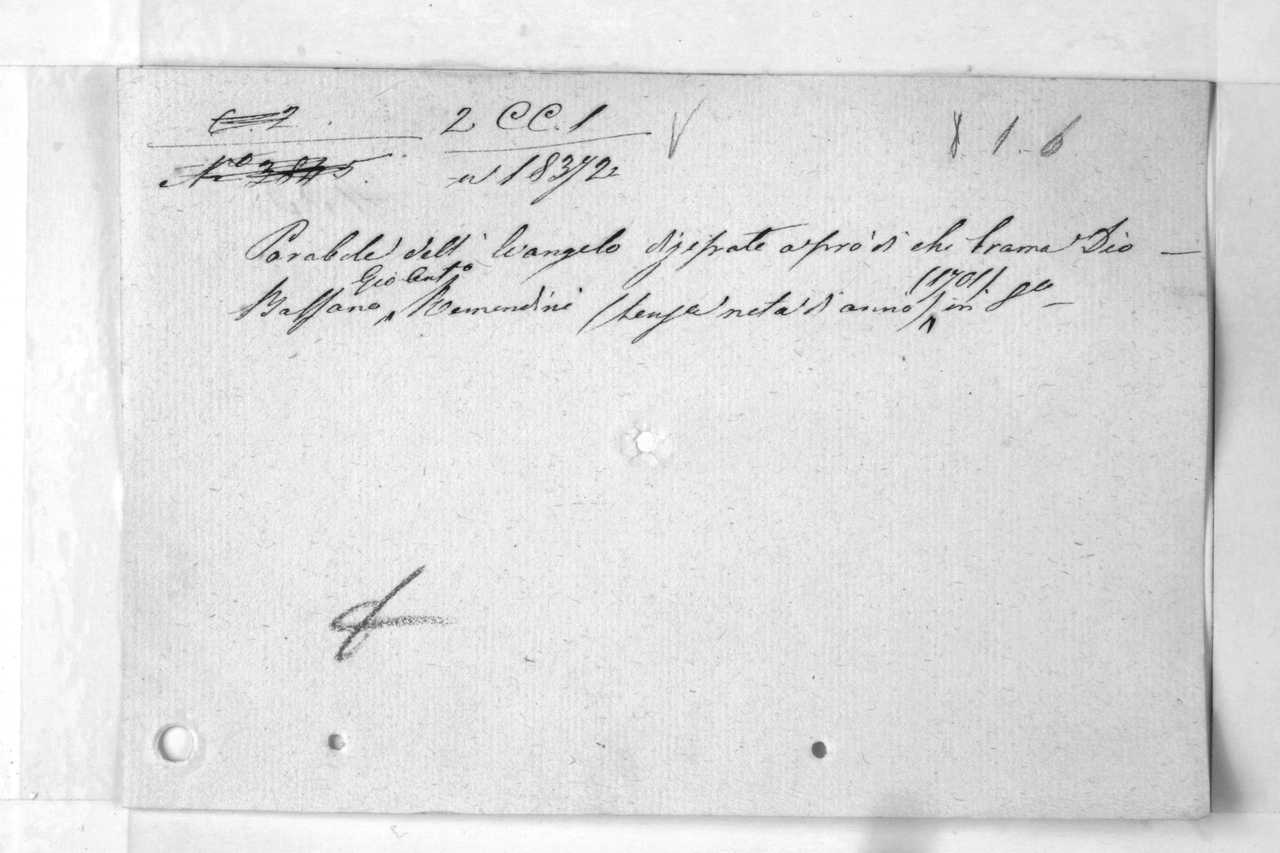 C. 2 2 CC. 1 V 8 1. 6
N.o 3845 n 18372
Parabole dell' Evangelo a pro di chi brama Dio —
Gio Ant.o (1701)
Bassano Remondini (senza nota di anno) in 8o —